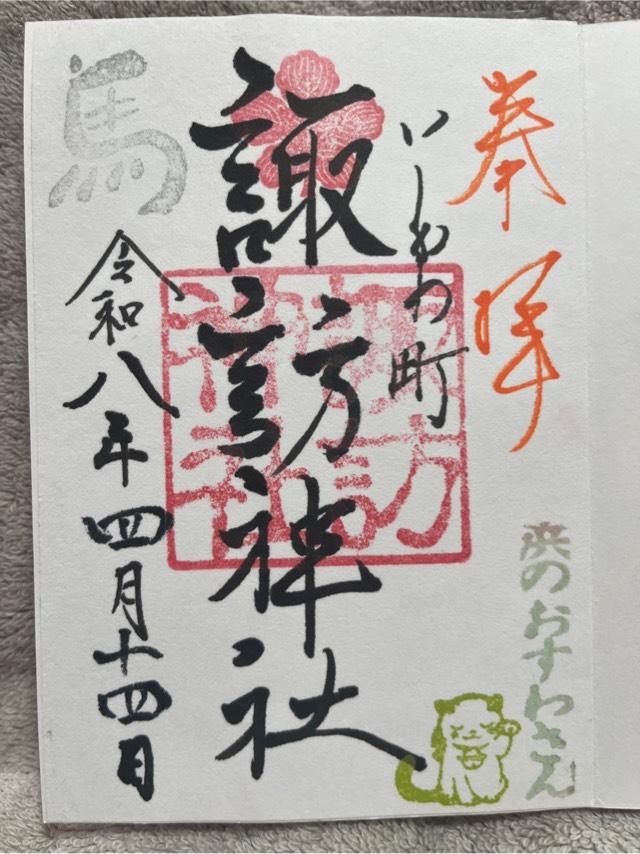 奉拝
浜のおすわさん
町
諏訪神社
諏訪
神社
馬
令和八年四月十四日